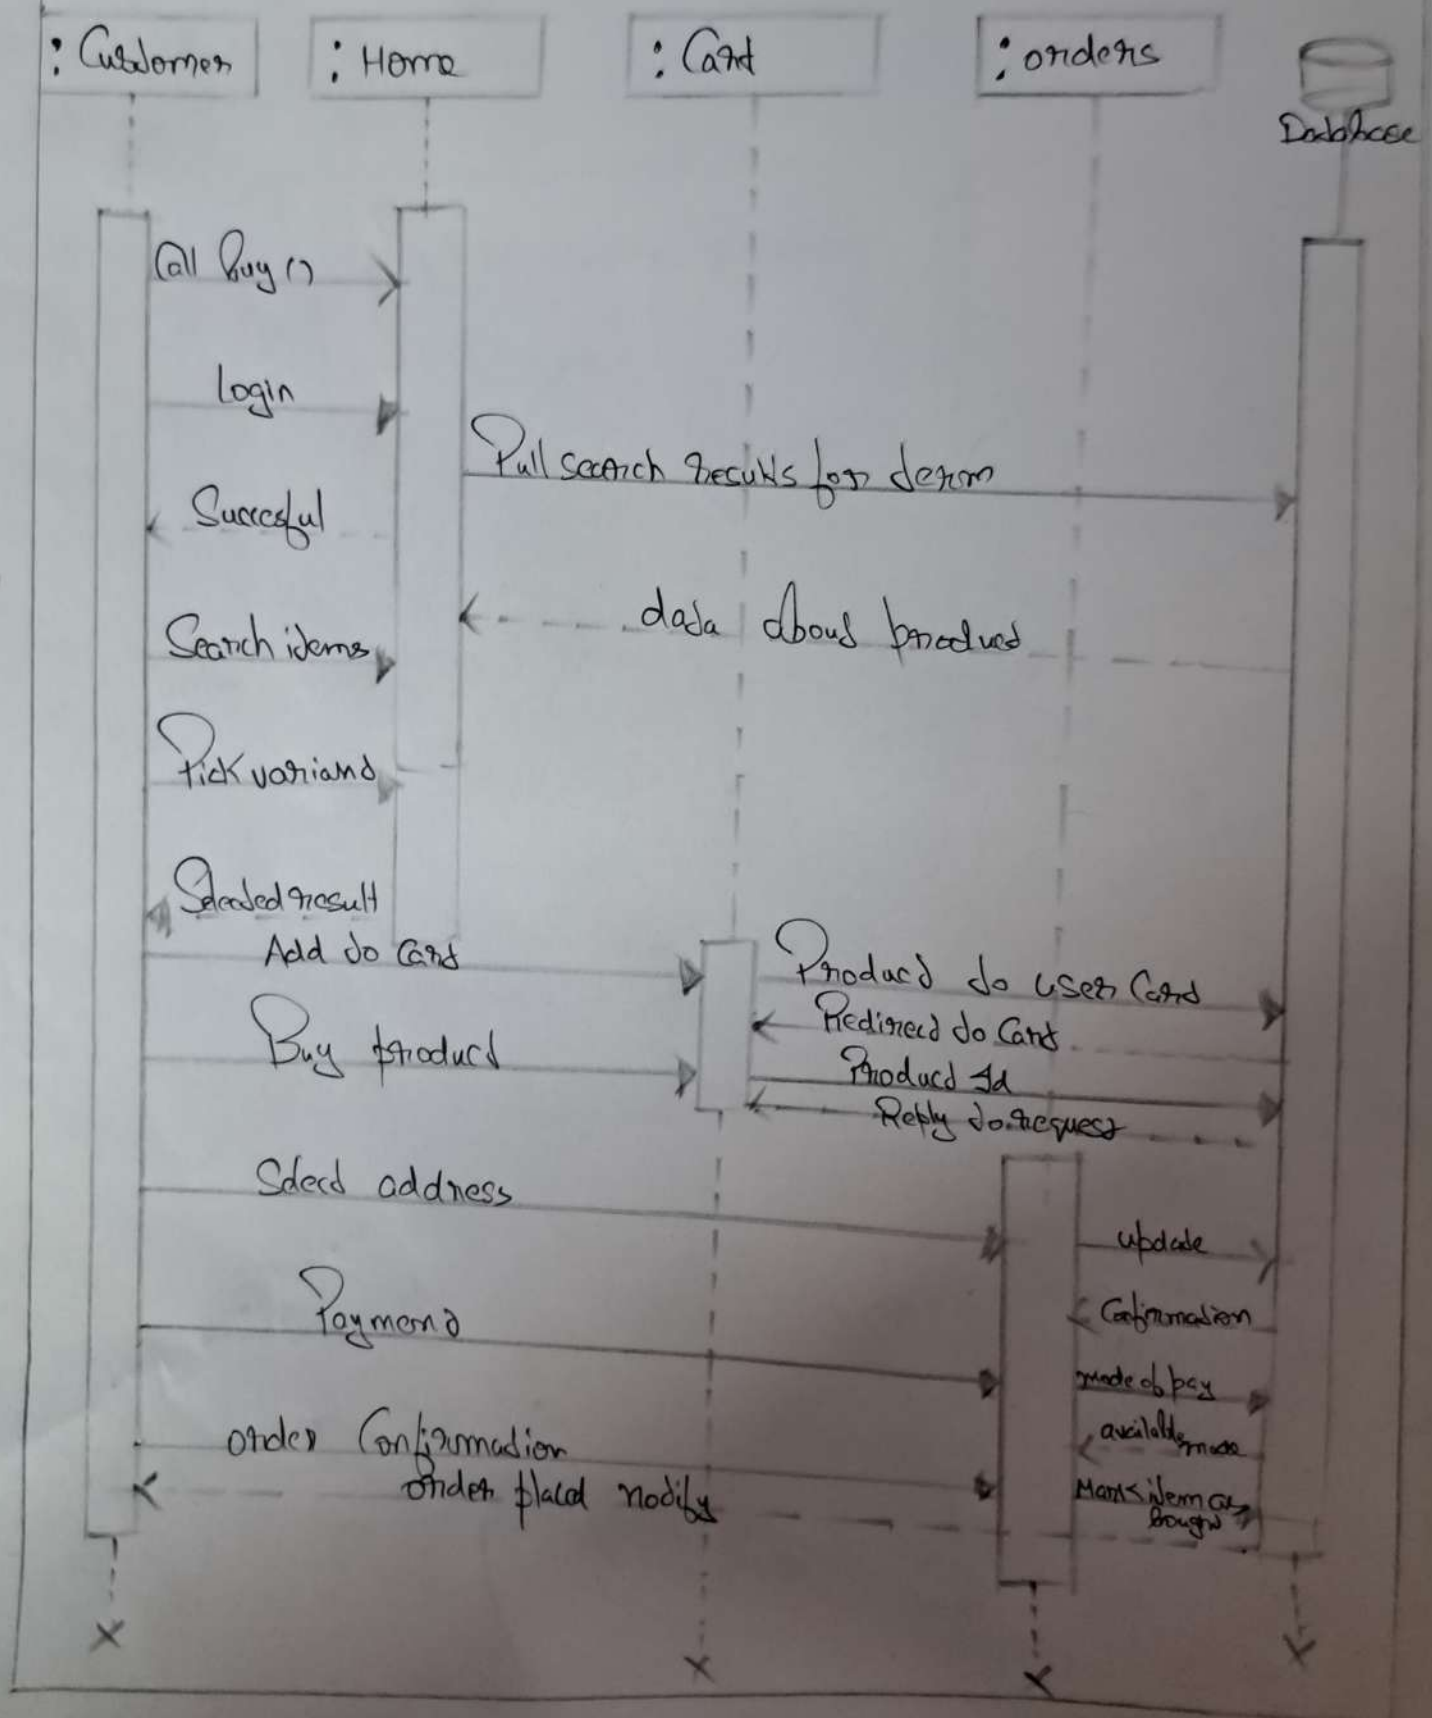 : Customer
: Home
: Cart
: orders
Database
Call buy ()
Login
Pull search results for term
Succesful
data about product
Search items
Pick variant
Selected result
Add to Cart
Product to user Cart
Redirect to Cart
Buy product
Product Id
Reply to request
Select address
update
Confirmation
Payment
mode of pay
available
mode
order Confirmation
order placed notify
Mark item as
bought